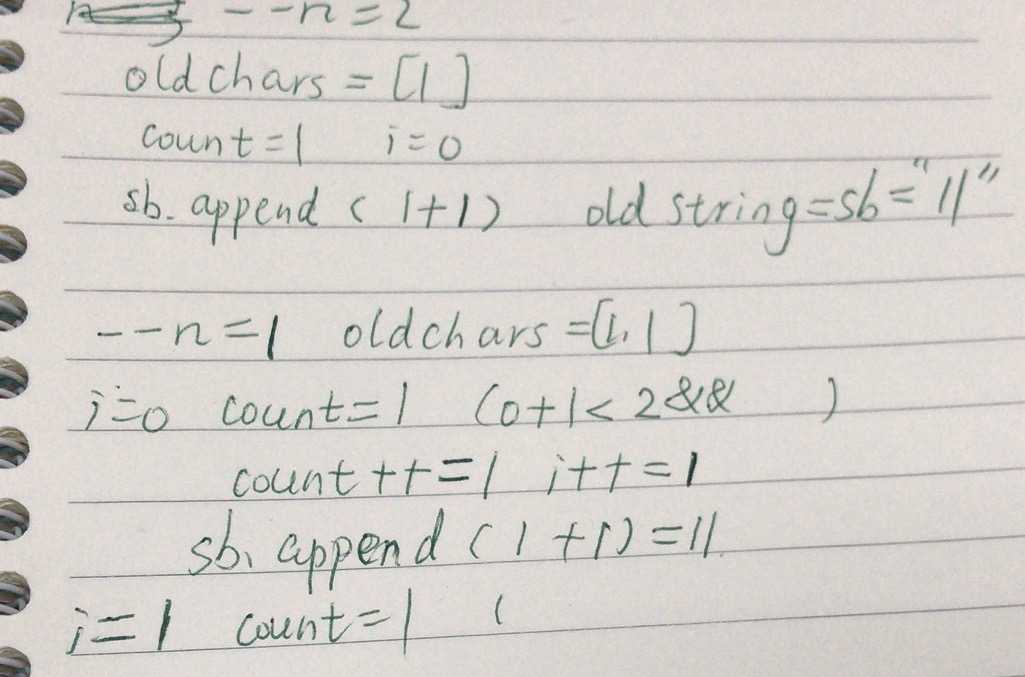 --n=2
old chars = [1]
count=1 i=0
sb. append ( 1+1) old string=sb="11"
--n=1 old chars =[1,1]
i=0 count=1 (0+1<2&& )
count++=1 i++=1
sb. append (1+1)=11.
i=1 count=1 (